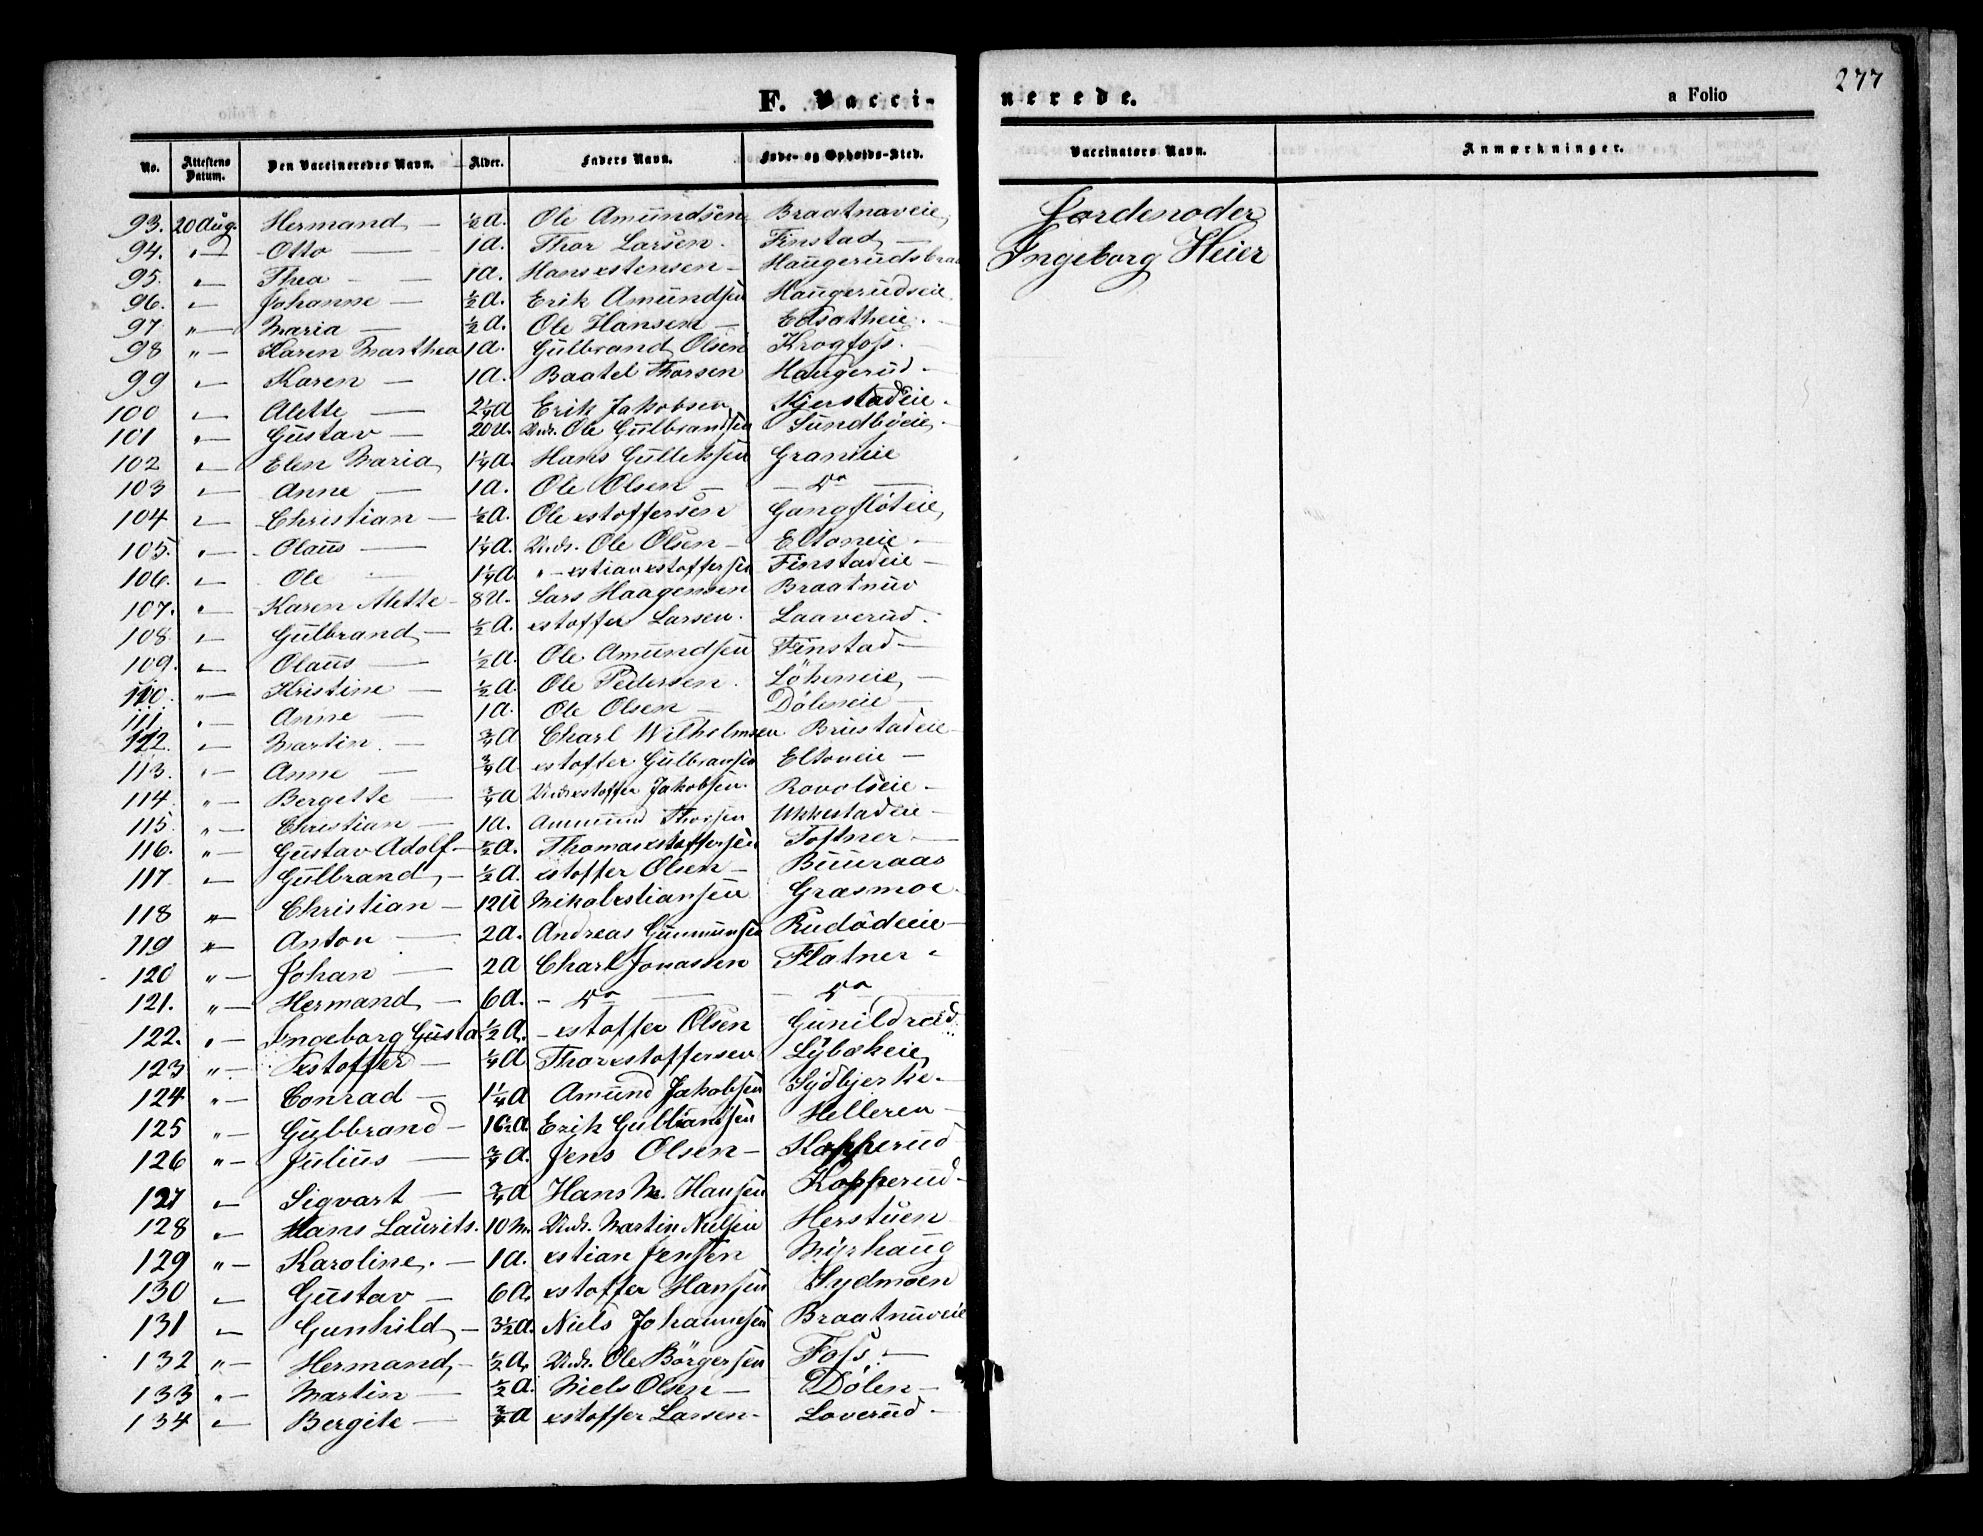 277
F. Vaccinerede. a Folio
No. Attestens Datum. Den Vaccineredes Navn. Alder. Faders Navn. Føde- og Opholds-Sted. Vaccinators Navn. Anmærkninger.
93. 20 Aug. Hermand — ½ A. Ole Amundsen Braatnaveie, Jordemoder
94. " — Otto — 1 A. Thor Larsen. Finstad — Ingeborg Heier
95. " — Thea — 1 A. Hans xstensen — Haugerudsbraa
96. " — Johanne — ½ A. Erik Amundsen Haugerudseie
97 " — Maria — ½ A. Ole Hansen —
98 " — Karen Marthea 1 A. Gulbrand Olsen Krogfoss. —
99 " — Karen — 1 A. Baatel Thorsen Haugerud —
100 " — Alette — 2¼ A Erik Jakobsen Kjerstadeie —
101 " — Gustav — 20 U. Unds. Ole Gulbrandsen Sundbyeie,
102 " — Elen Maria 1¼ A. Hans Gulleksen Graneie
103 " — Anne — 1 A. Ole Olsen — — Do —
104 " — Christian — ½ A. Ole xstoffersen Gangfløteie,
105. " — Olaus — 1¼ A. Unds. Ole Olsen — Eltoneie —
106. " — Ole — 1¼ A. " — xstian xstoffersen Finstadeie —
107. " — Karen Alette — 8 U. Lars Haagensen Braatnuv
108 " — Gulbrand — ½ A. xstoffer Larsen. Laaverud.
109. " — Olaus — ½ A. Ole Amundsen Finstad —
110. " — Kristine — ½ A. Ole Pedersen. Løkeneie, —
111. " — Anne — 1 A. Ole Olsen — Døleneie —
112. " — Martin. — ¾ A Charl Wilhelmsen Brustadeie —
113. " — Anne — ¾ A xstoffer Gulbransen Eltoneie —
114 " — Bergette — ¾ A Unds xstoffer Jakobsen. Rovolseie —
115 " — Christian — 1 A. Ammund Thorsen Ukkestadeie —
116. " — Gustav Adolf — ½ A. Thomas xstoffersen Toftner —
117 " — Gulbrand — ½ A. xstoffer Olsen — Buuraas
118 " — Christian — 12 U Mikal xstiansen Grasmoe.
119 " — Anton — 2 A. Andreas Gunnunsen Rudødeie —
120 " — Johan — 2 A Charl Jonassen Flatner —
121. " — Hermand — 6 A. — Do — — Do —
122. " — Ingeborg Gusta. ½ A. — xstoffer Olsen Gunildrud
123 " — Xstoffer — ¼ A Thor xstoffersen Lybækeie,
124 " — Conrad — 1¼ A Amund Jakobsen Sydbjerke —
125 " — Gulbbrand — 10 A. Erik Gulbransen Helleren —
126 " — Julius — ¾ A. Jens Olsen — Kopperud
127 " — Sigvart — ¾ A Hans M. Hansen Kopperud —
128 " — Hans Laurits. 10 M. Unds. Martin Nielsen Herstuen
129 " — Karoline. — 1 A. xstian Jensen Myrhaug
130 " — Gustav — 6 A. xstoffer Hansen Sydmoen
131 " — Gunhild — 3½ A. Niels Johannesen Braatnuveie
132 " — Hermand, — ½ A. Unds. Ole Börgersen Foss. —
133 " — Martin — ½ A. Niels Olsen — Dølen —
134 " — Bergite — ¾ A xstoffer Larsen — Loverud —